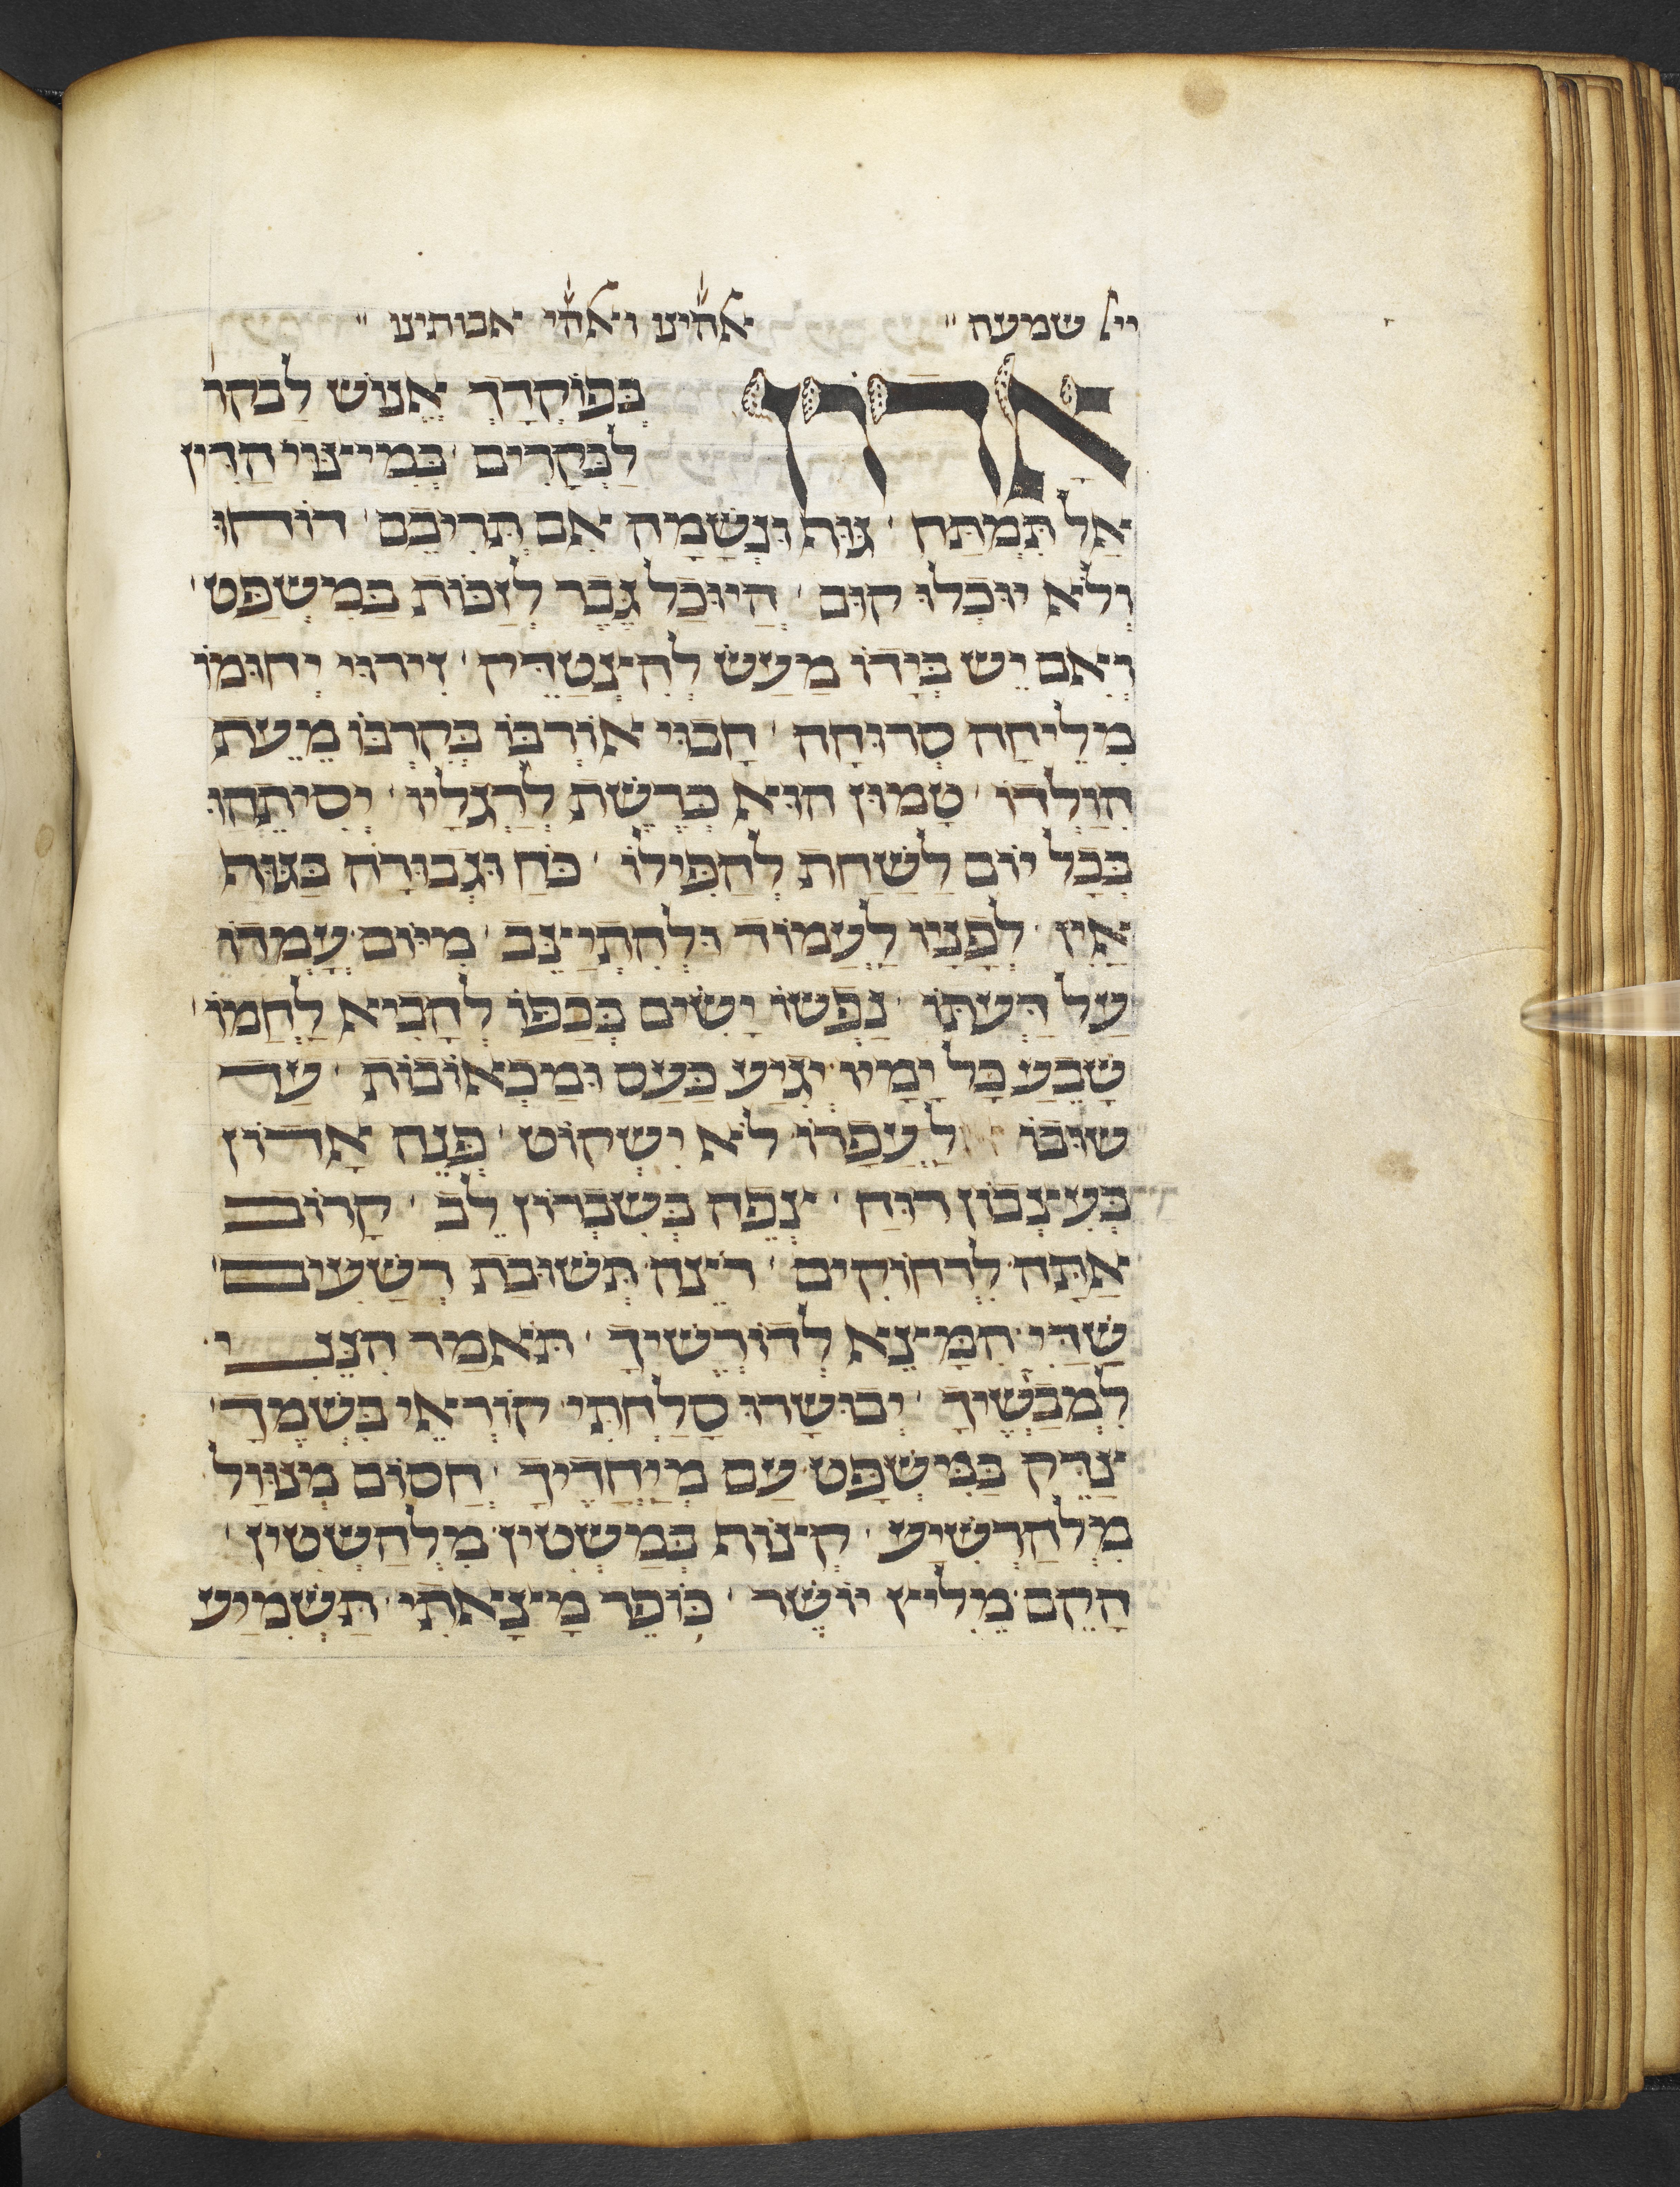 ייל שמעה אלהינו ואלהי אבותינו
אָדוֹן בְּפוֹקְדָךְ אֱנוֹשׁ לַבְקר
לַבְּקָרִים בְּמִיצּוּי הַדִּין
אַל תִּמְתַּח גּוּת וּנְשָׁמָה אִם תְּרִיבֵם דוֹחוּ
וְלֹא יוּכְלוּ קוּם הֲיוּכַל גֶּבֶר לִזְכּוֹת בַּמִשְׁפָּט
וְאִם יֵשׁ בְּיָדוֹ מַעַשׂ לְהִצְטַדֵּק זִירוּי יְקוּמוֹ
מִלֵיחָה סְרוּחָה חָבוּי אוֹרְבוֹ בְּקִרְבּוֹ מֵעֵת
הִוָּלְדוֹ טָמוּן הוּא כְּרֶשֶׁת לְרַגְלָיו יְסִיתֵהוּ
בְּכָל יוֹם לַשַׁחַת לְהַפִּילוֹ כֹּחַ וּגְבוּרָה בַּגּוּת
אֵין לְפָנָיו לַעֲמוֹד וּלְהִתְיַצֵּב מִיוֹם עָמְדוֹ
עַל דַּעְתּוֹ נַפְשׁוֹ יָשִׂים בְּכַפּוֹ לְהָבִיא לַחְמוֹ
שָׂבֵעַ כָּל יָמָיו יְגִיעַ כַּעַס וּמַכְאוֹבוֹת עַד
שׁוּבוֹ לַעֲפָרוֹ לֹא יִשְׁקוֹט פְּנֵה אָדוֹן
בְּעִצְבוֹן רוּחַ צְפֵה בְּשִׁבְרוֹן לֵב קָרוֹב
אַתָּה לִרְחוֹקִים רְצֵה תְּשׁוּבַת רְשָׁעִים
שַׁדַּי הִמָּצֵא לְדוֹרְשֶׁיךָ תֹּאמַר הִנֵּנִי
לִמְבַקְשֶׁיךָ יְבוּשָׂרוּ סָלַחְתִּי קוֹרְאֵי בִשְׁמֶךָ
צַדֵּק בַּמִּשְׁפָּט עַם מְיַחֲדֶיךָ חֲסוֹם מְנוּוָל
מִלְהַרְשִׁיעַ קְצוֹת בְּמַשְׂטִין מִלְהַשְׂטִין
הָקֵם מֵלִיץ יוֹשֶׁר כּוֹפֶר מָצָאתִי תַּשְׁמִיעַ